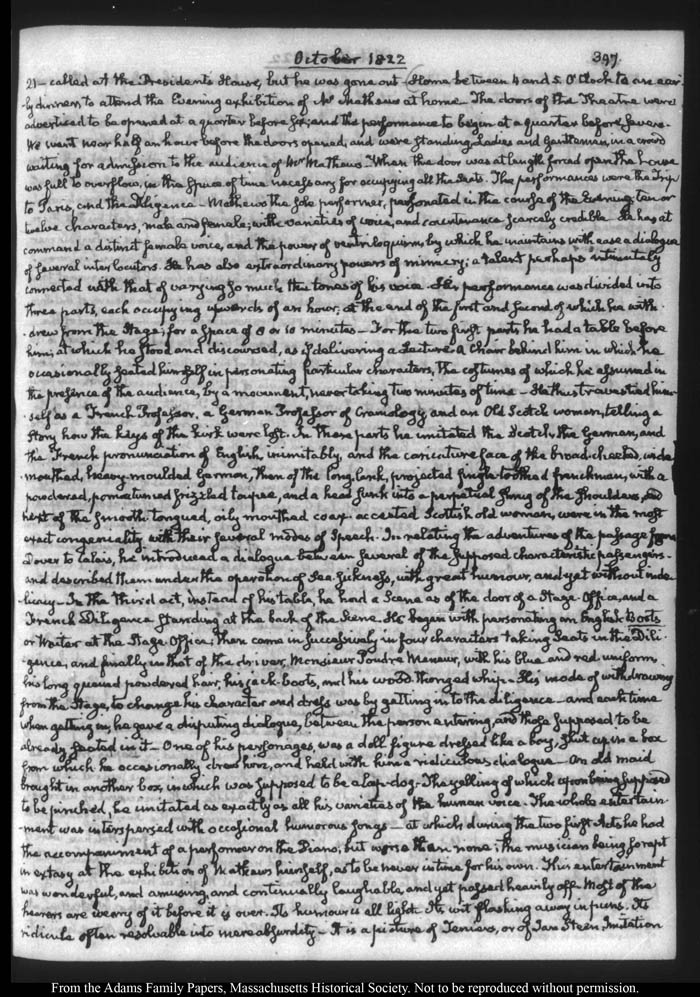 October 1822
397.
21— called at the Presidents House, but he was gone out— Home between 4 and 5 O'Clock to an ear-
ly dinner, to attend the Evening exhibition of Mr Mathews at home. The doors of the Theatre were
advertised to be opened at a quarter before six; and the performance to begin at a quarter before seven.
We went near half an hour before the doors opened, and were standing, Ladies and Gentlemen, in a crowd
waiting for admission to the audience of Mr Mathews. When the door was at length forced open the house
was full to overflow, in the space of time necessary for occupying all the seats. The performances were the Trip
to Paris, and the Diligence— Mathews the sole performer, personated in the course of the Evening ten or
twelve characters, male and female; with varieties of voice, and countenance scarcely credible. He has at
command a distinct female voice, and the power of ventriloquism, by which he maintains with ease a dialogue
of several interlocutors. He has also extraordinary powers of mimicry; a talent perhaps intimately
connected with that of varying so much the tones of his voice. His performance was divided into
three parts, each occupying upwards of an hour; at the end of the first and second of which he with-
drew from the Stage, for a space of 8 or 10 minutes— For the two first parts he had a table before
him, at which he stood and discoursed, as if delivering a Lecture. A Chair behind him in which he
occasionally seated himself in personating particular characters, the costumes of which he assumed in
the presence of the audience, by a movement, never taking two minutes of time— He thus travestied him-
self as a French Professor, a German Professor of Craniology, and an Old Scotch woman, telling a
story how the keys of the kirk were lost. In these parts he imitated the Scotch, the German, and
the French pronunciation of English, inimitably, and the caricature face of the broad-cheeked, wide
mouthed, heavy-moulded German, then of the long, lank, projected single toothed frenchman, with a
powdered, pomatumed frizzled toupee, and a head sunk into a perpetual shrug of the shoulders, and
next of the smooth tongued, oily mouthed coax accented Scottish old woman, were in the most
exact congeniality with their several modes of speech. In relating the adventures of the passage from
Dover to Calais, he introduced a dialogue between several of the supposed characteristic passengers
and described them under the operation of Sea Sickness, with great humour, and yet without inde-
licacy— In the third act, instead of his table, he had a Scene as of the door of a Stage-Office, and a
French Diligence standing at the back of the Scene. He began with personating an English Boots
or Waiter at the Stage-Office; then came in successively in four characters taking Seats in the Dili-
gence, and finally in that of the driver, Monsieur Poudre Meneur, with his blue and red uniform,
his long queued powdered hair, his jack-boots, and his word thonged whip— His mode of withdrawing
from the Stage, to change his character and dress was by getting into the diligence— and each time
when getting in, he gave a disputing dialogue, between the person entering, and those supposed to be
already seated in it— One of his personages, was a doll figure dressed like a boy, shut up in a box
from which he occasionally drew him, and held with him a ridiculous dialogue— An old maid
brought in another box, in which was supposed to be a lap-dog— The yelling of which upon being supposed
to be pinched, he imitated as exactly as all his varieties of the human voice. The whole entertain-
ment was interspersed with occasional humorous songs— at which, during the two first Acts he had
the accompaniment of a performer on the Piano; but worse than none; the musician being so rapt
in extasy at the exhibition of Mathews himself, as to be never in time for his own. This entertainment
was wonderful, and amusing, and continually laughable, and yet passed heavily off. Most of the
hearers are weary of it before it is over. Its humour is all light. Its wit flashing away in puns. Its
ridicule often resolvable into mere absurdity— It is a picture of Teniers, or of Jan Steen, Imitation
From the Adams Family Papers, Massachusetts Historical Society. Not to be reproduced without permission.